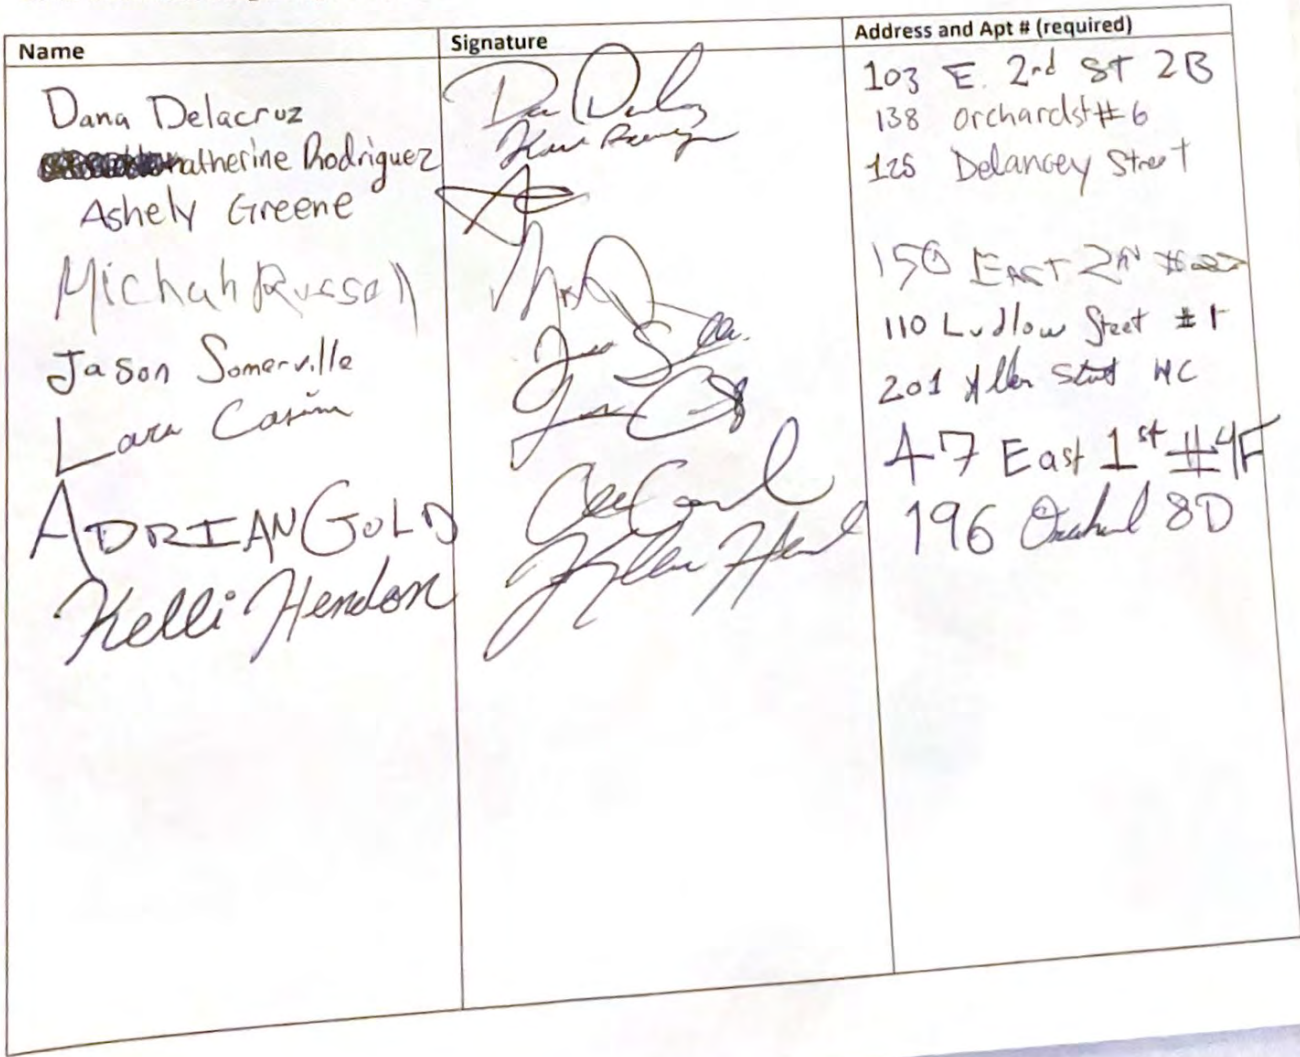 Name Signature Address and Apt # (required)
Dana Delacruz 103 E. 2nd St 2B
Katherine Rodriguez 138 Orchardst #6
Ashely Greene 125 Delancey Street
Michah Russell 150 EAST 2ND
Jason Somerville 110 Ludlow Street #1
Lara 201 Allen Street
ADRIAN GOLD 47 East 1st #4F
Kelli Hendon 196 Orchard 8D